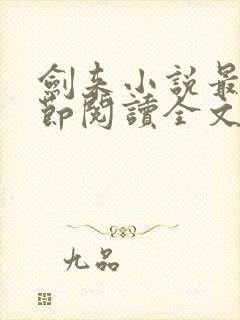 劍來小說最
節閱讀全文
九品